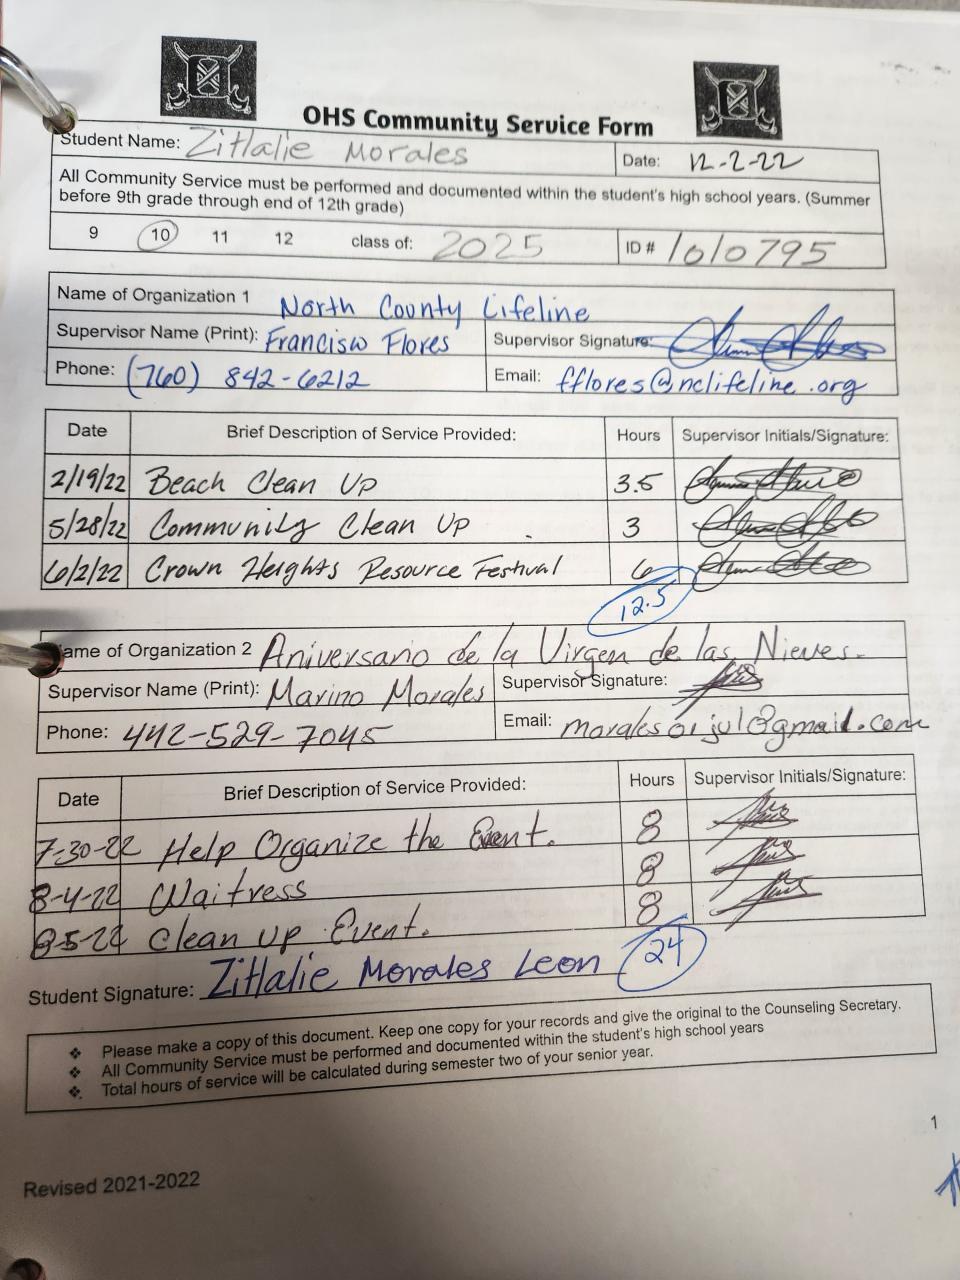 OHS Community Service Form
Student Name: Zitlalie Morales Date: 12-2-22
All Community Service must be performed and documented within the student's high school years. (Summer
before 9th grade through end of 12th grade)
9 10 11 12 class of: 2025 ID # 1010795
Name of Organization 1 North County Lifeline
Supervisor Name (Print): Francisco Flores Supervisor Signature:
Phone: (760) 842-6212 Email: fflores@nclifeline.org
Date Brief Description of Service Provided: Hours Supervisor Initials/Signature:
2/19/22 Beach Clean Up 3.5
5/28/22 Community Clean Up 3
6/2/22 Crown Heights Resource Festival 6
12.5
Name of Organization 2 Aniversario de la Virgen de las Nieves.
Supervisor Name (Print): Marino Morales Supervisor Signature:
Phone: 442-529-7045 Email:
Date Brief Description of Service Provided: Hours Supervisor Initials/Signature:
7-30-22 Help Organize the Event. 8
8-4-22 Waitress 8
8-5-22 Clean up Event. 8
24
Student Signature: Zitlalie Morales Leon
❖ Please make a copy of this document. Keep one copy for your records and give the original to the Counseling Secretary.
❖ All Community Service must be performed and documented within the student's high school years
❖ Total hours of service will be calculated during semester two of your senior year.
1
Revised 2021-2022